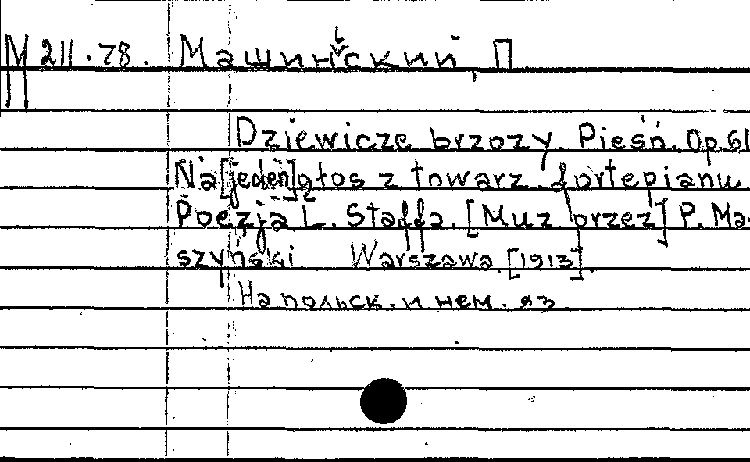 М 211.78. Машиньский, П
Dziewicze brzozy. Pieśń. Op. 61
Na [jeden] głos z towarz. fortepianu.
Poezja L. Staffa. [Muz przez] P. Ma-
szyński Warszawa. [1913].
На польск. и нем. яз.